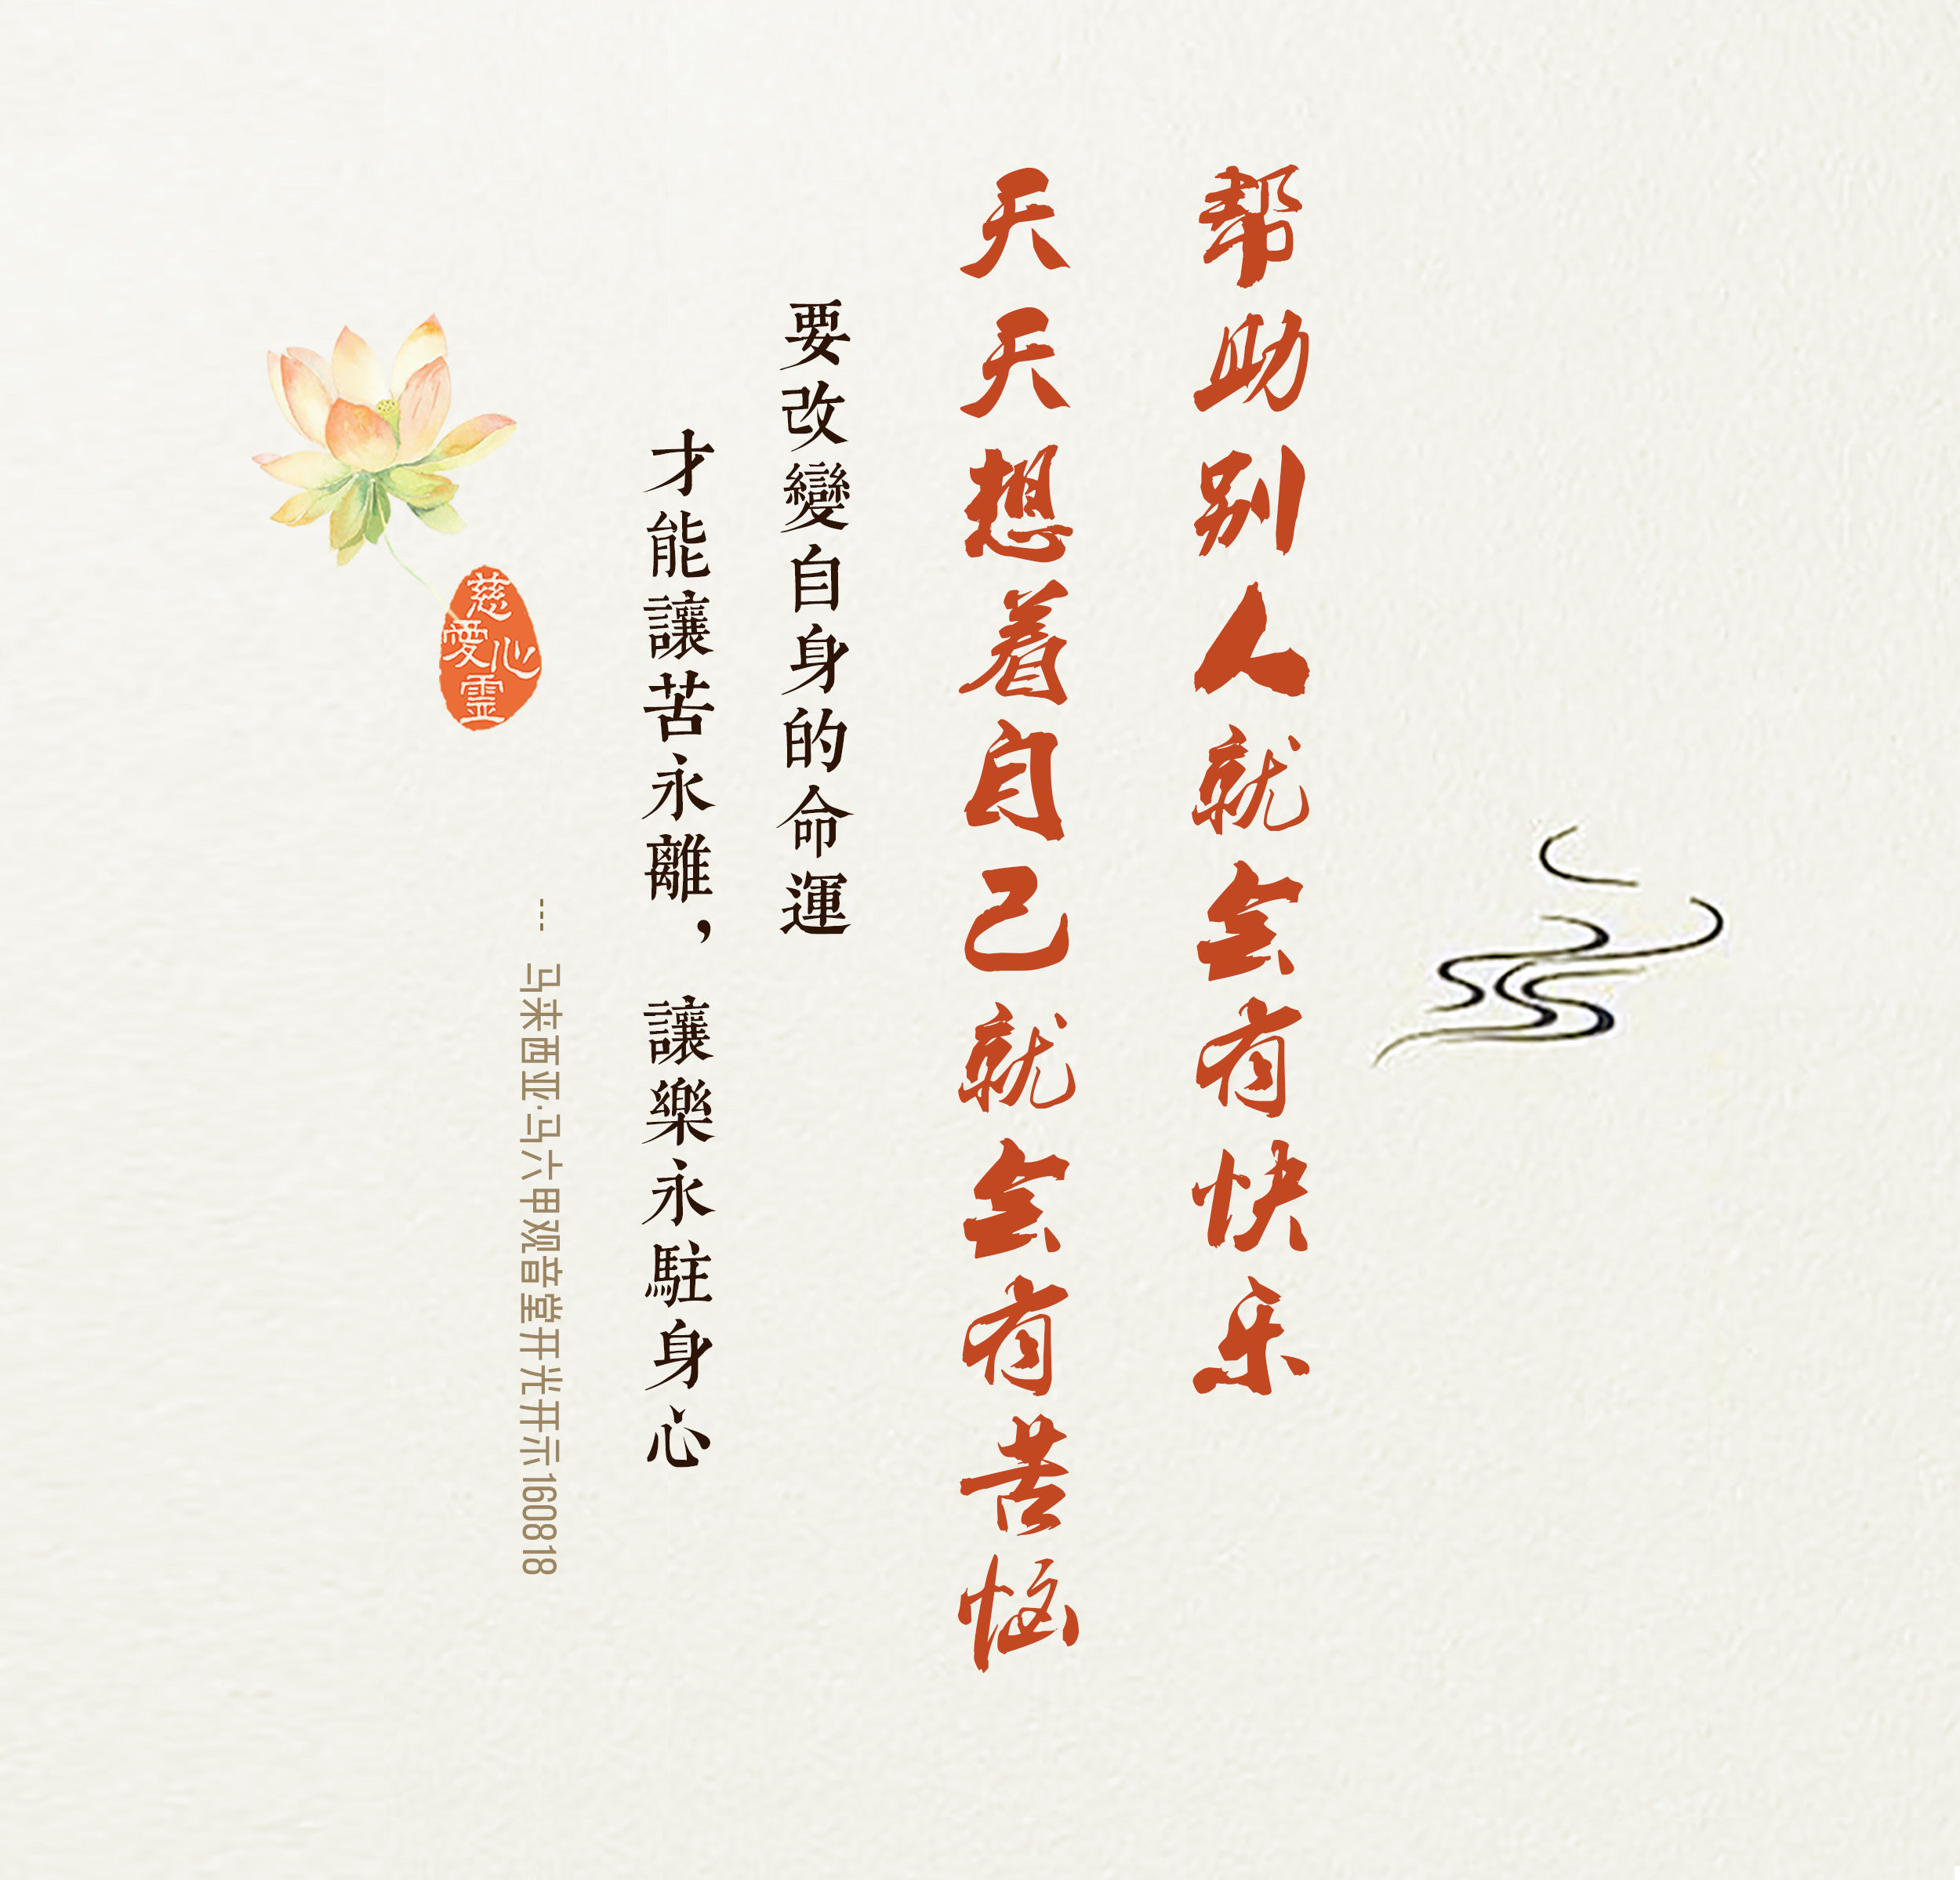 帮助别人就会有快乐
天天想着自己就会有苦恼
要改變自身的命運
才能讓苦永離，讓樂永駐身心
--- 马来西亚·马六甲观音堂开光开示160818
慈愛心靈